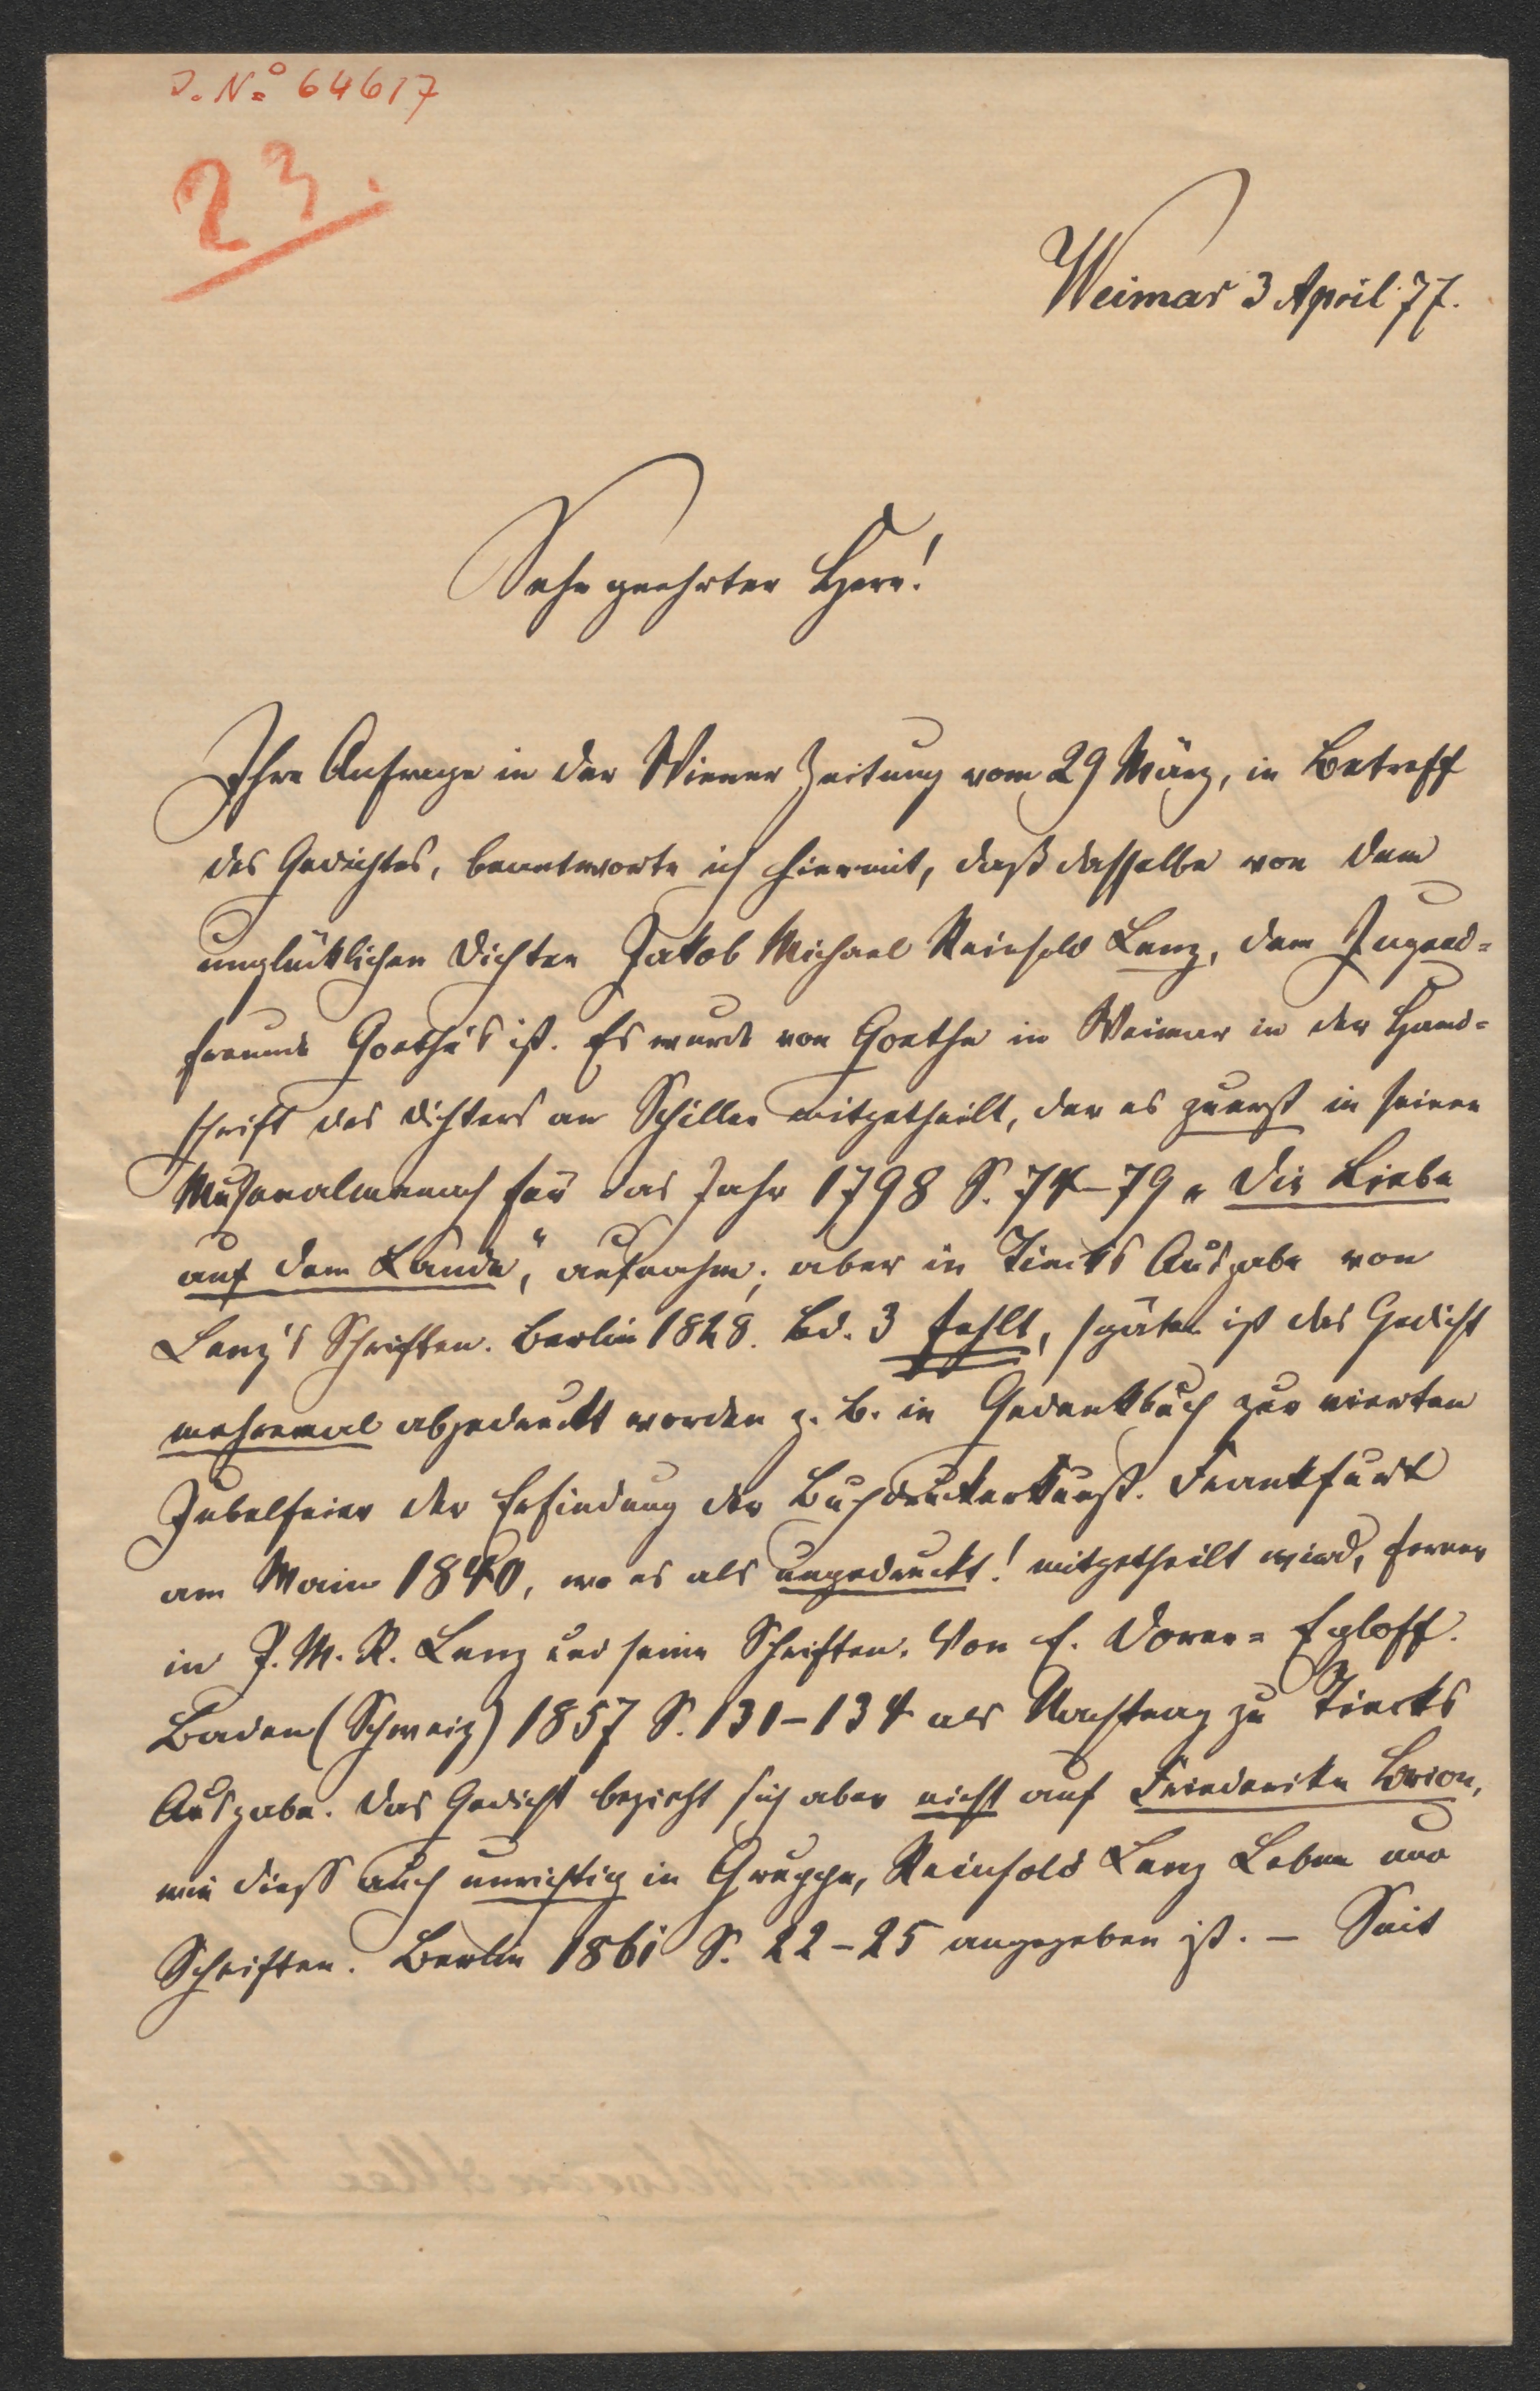 J. No 64617
23.
Weimar 3 April 77.
Sehr geehrter Herr!
Ihre Anfrage in der Wiener Zeitung vom 29 März, in Betreff
des Gedichtes, beantworte ich hiermit, daß dasselbe von dem
unglücklichen Dichter Jakob Michael Reinhold Lenz, dem Jugend-
freunde Goethe's ist. Es wurde von Goethe in Weimar in der Hand-
schrift des Dichters an Schiller mitgetheilt, der es zuerst in seinen
Musenalmanach für das Jahr 1798 S. 74–79 „Die Liebe
auf dem Lande“, aufnahm, aber in Tiecks Ausgabe von
Lenz's Schriften. Berlin 1828. Bd. 3 fehlt, später ist das Gedicht
mehremal abgedruckt worden z. B. in Gedenkbuch zur vierten
Jubelfeier der Erfindung der Buchdruckerkunst. Frankfurt
am Main 1840, wo es als ungedruckt! mitgetheilt wird, ferner
in J. M. R. Lenz und seine Schriften. Von E. Dorer-Egloff.
Baden (Schweiz) 1857 S. 131–134 als Nachtrag zu Tiecks
Ausgabe. Das Gedicht bezieht sich aber nicht auf Friederike Brion,
wie dieß auch unrichtig in Gruppe, Reinhold Lenz Leben und
Schriften. Berlin 1861 S. 22–25 angegeben ist. – Seit